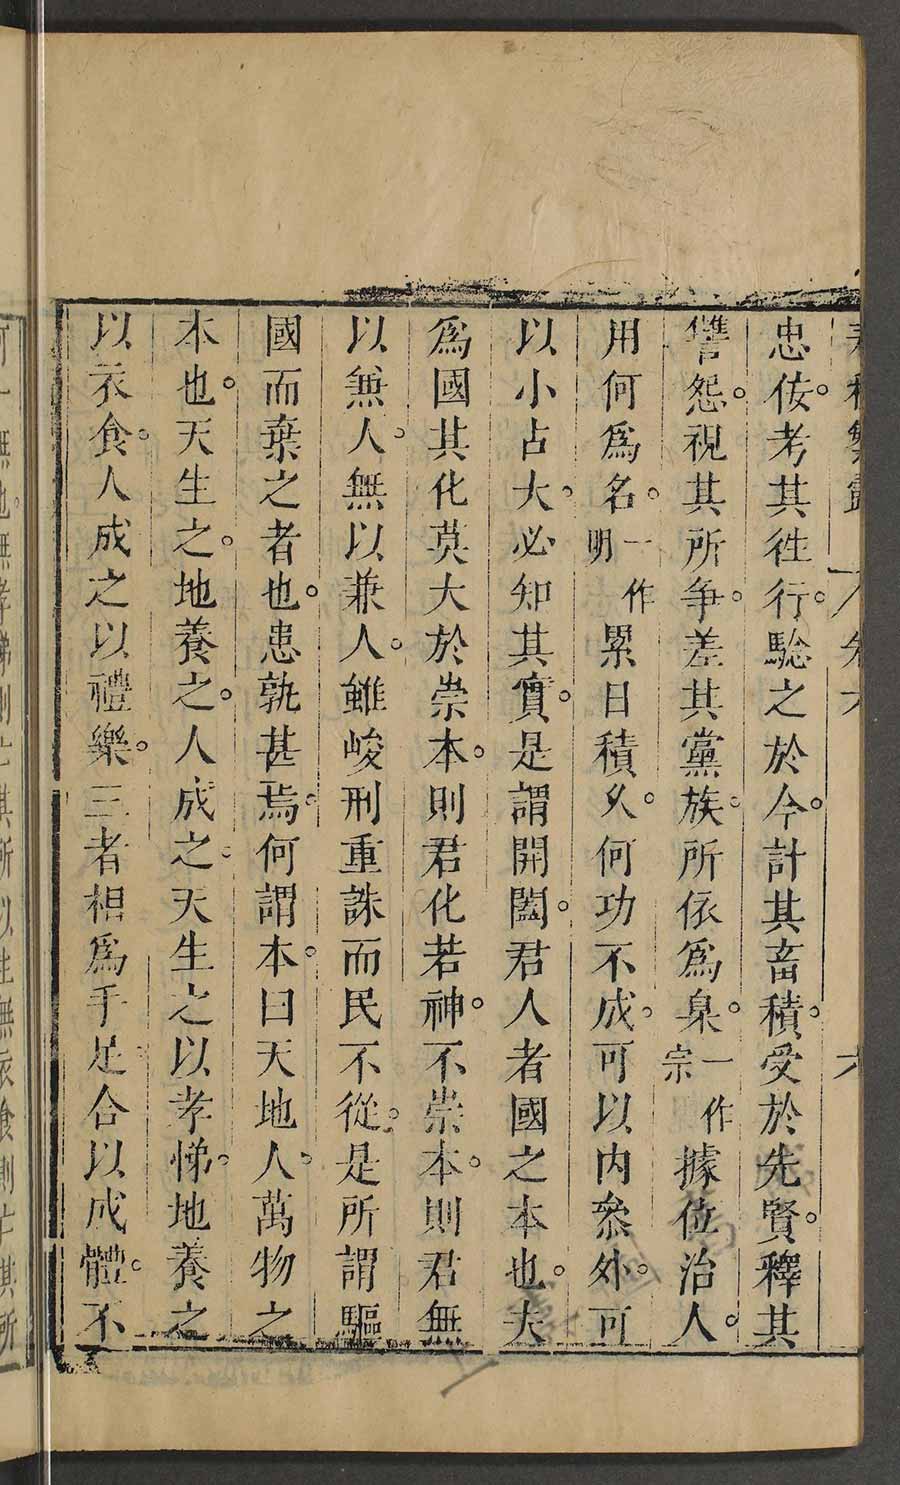 春秋繁露 卷六 六
忠佞。考其徃行。騐之於今。計其畜積。受於先賢。釋其
讐怨。視其所爭。差其黨族。所依爲臬。一作宗據位治人。
用何爲名。一作明累日積久。何功不成。可以内叅外。可
以小占大。必知其實。是謂開闔。君人者國之本也。夫
爲國其化莫大於崇本。則君化若神。不崇本。則君無
以兼人。無以兼人。雖峻刑重誅而民不從。是所謂驅
國而棄之者也。患孰甚焉。何謂本。曰天地人。萬物之
本也。天生之。地養之。人成之。天生之以孝悌。地養之
以衣食。人成之以禮樂。三者相爲手足合以成體。不
可一無也。無孝悌則亡其所以生無衣食則亡其所